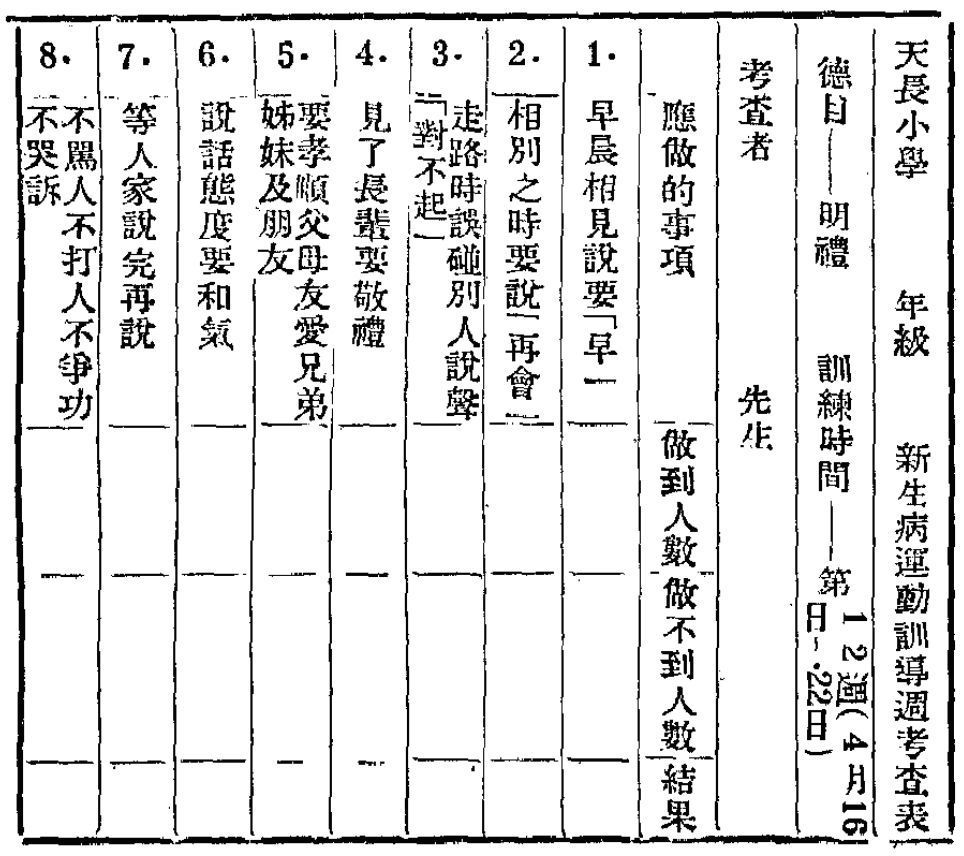 天長小學　年級　新生病運動訓導週考查表
德目——明禮　訓練時間——第12週(4月16日～22日)
考查者　先生
應做的事項　做到人數　做不到人數　結果
1. 早晨相見說要「早」
2. 相別之時要說「再會」
3. 走路時誤碰別人說聲
「對不起」
4. 見了長輩要敬禮
5. 要孝順父母友愛兄弟
姊妹及朋友
6. 說話態度要和氣
7. 等人家說完再說
8. 不罵人不打人不爭功
不哭訴